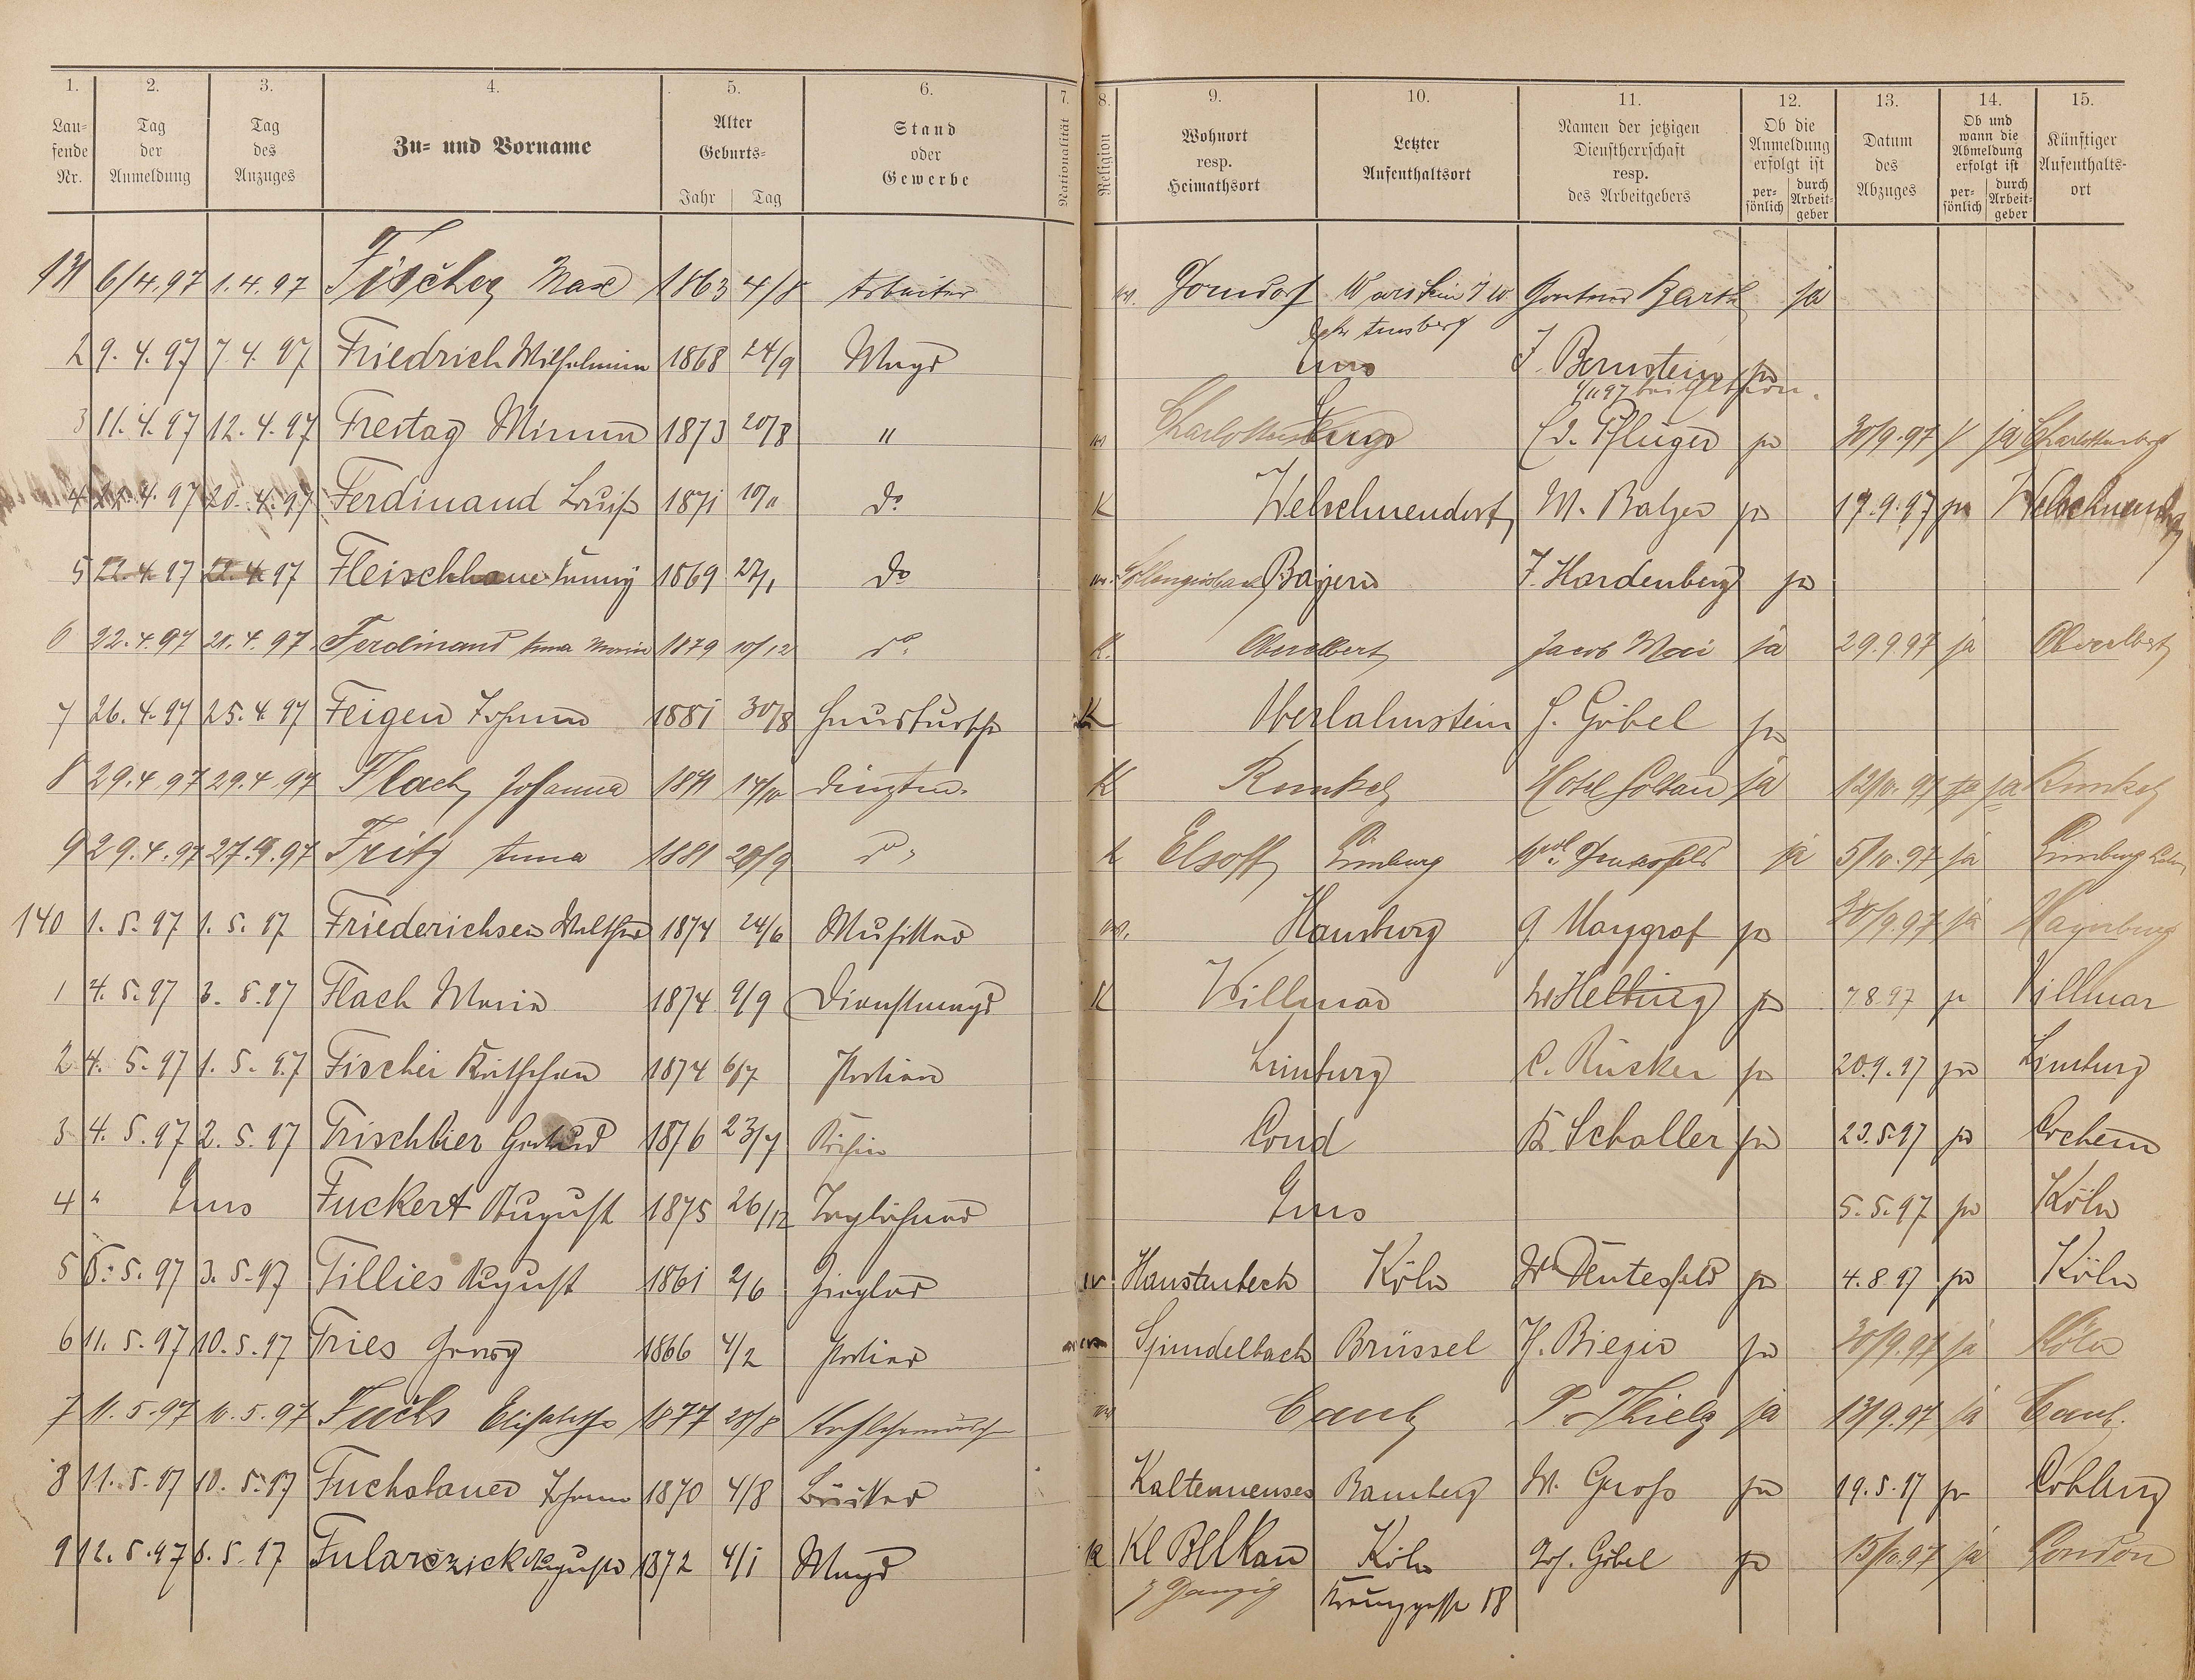 1. 2. 3. 4. 5. 6. 7. 8. 9. 10. 11. 12. 13. 14. 15.
Lau-
fende
Nr.
Tag
der
Anmeldung
Tag
des
Anzuges
Zu- und Vorname
Alter
Geburts-
Jahr Tag
Stand
oder
Gewerbe
Nationalität
Religion
Wohnort
resp.
Heimathsort
Letzter
Aufenthaltsort
Namen der jetzigen
Dienstherrschaft
resp.
des Arbeitgebers
Ob die
Anmeldung
erfolgt ist
per-
sönlich
durch
Arbeit-
geber
Datum
des
Abzuges
Ob und
wann die
Abmeldung
erfolgt ist
per-
sönlich
durch
Arbeit-
geber
Künftiger
Aufenthalts-
ort
131 6/4.97 1.4.97 Fischer Max 1863 4/8 Arbeiter Warstein Barth ja
2 9.4.97 7.4.97 Friedrich Wilhelmine 1868 24/9 Magd Ems J. Bernstein ja
3 11.4.97 12.4.97 Freitag Minna 1873 20/8 " Charlottenberg Ems Ed. Pflüger ja 30/9.97 ja Charlottenberg
4 97 20.4.97 Ferdinand Louise 1871 d° K Welschneudorf M. Balzer ja 17.9.97 ja Welschneudorf
5 22.4.97 22.4.97 Fleischhauer Fanny 1869 27/1 d° Bayern F. Hardenberg ja
6 22.4.97 21.4.97 Ferdinand Anna Maria 1879 10/12 d° K. Oberelbert Jacob Mai ja 29.9.97 ja Oberelbert
7 26.4.97 25.4.97 Feigen Johann 1881 30/8 Hausbursche K Oberlahnstein H. Göbel ja
8 29.4.97 29.4.97 Flach Johanna 1871 14/10 K Runkel Hotel Goltau ja 12/10.97 ja ja Runkel
9 29.4.97 27.4.97 Fritz Anna 1881 20/9 d° K Elsoff Limburg ja 5/10.97 ja Limburg
140 1.5.97 1.5.97 Friederichsen Walther 1874 24/6 Musiker Hamburg G. Maygraf ja 30/9.97 ja Hamburg
1 4.5.97 3.5.97 Flach Maria 1874 9/9 Dienstmagd K Villmar W Helbing ja 7.8.97 ja Villmar
2 4.5.97 1.5.97 Fischer Kättchen 1874 6/7 Limburg C. Rücker ja 20.9.97 ja Limburg
3 4.5.97 2.5.97 Frischbier Gertrud 1876 23/7 Köchin Cond K. Schaller ja 23.5.97 ja Cochem
4 " Ems Fuckert August 1875 26/12 Taglöhner Ems 5.5.97 ja Köln
5 5.5.97 3.5.97 Fillies August 1861 2/6 Ziegler Haustenbeck Köln ja 4.8.97 ja Köln
6 11.5.97 10.5.97 Fries Georg 1866 4/2 Portier Spindelbach Brüssel H. Bieger ja 30/9.97 ja Köln
7 11.5.97 10.5.97 Fuchs Elisabeth 1877 20/8 Caub P. Thiel ja 13/9.97 ja Caub.
8 11.5.97 10.5.97 Fuchsbauer Johann 1870 4/8 Bäcker Bamberg W. Groß ja 19.5.97 ja Coblenz
9 12.5.97 6.5.97 Fularczick Auguste 1872 4/1 Magd K Kl Bölkau Köln Jos. Göbel ja 15/10.97 ja London
Danzig 18